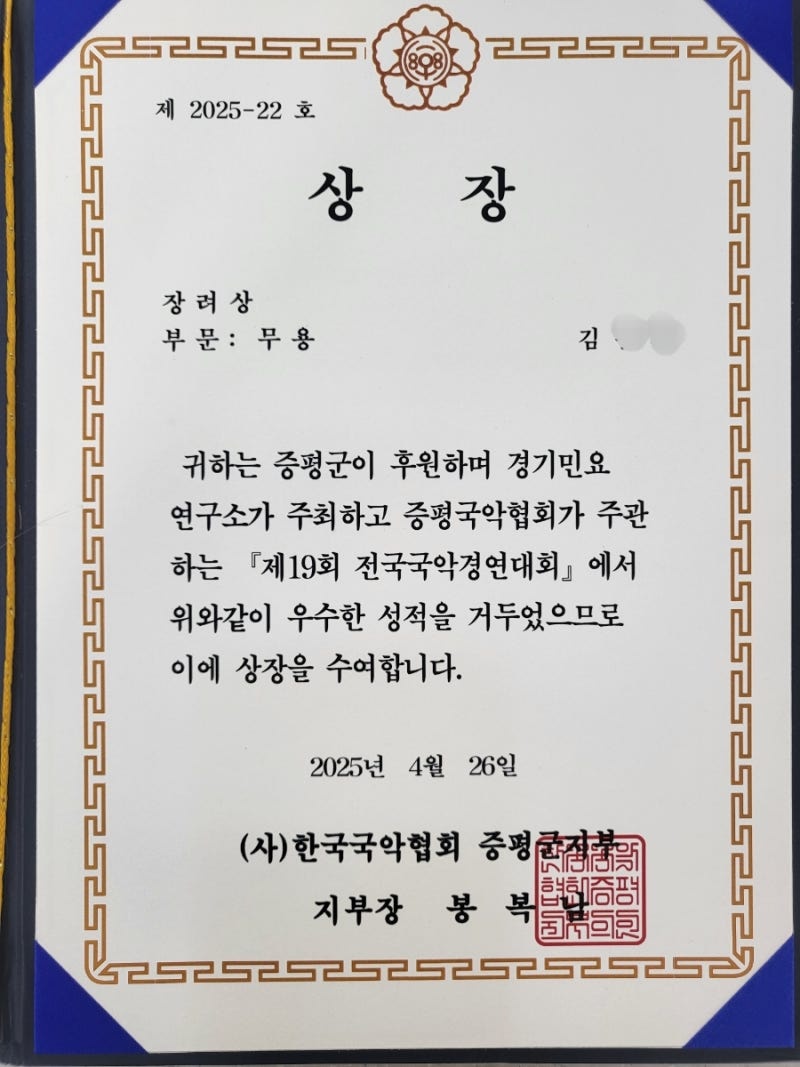 제 2025-22 호
상 장
장려상
부문: 무용
김
귀하는 증평군이 후원하며 경기민요
연구소가 주최하고 증평국악협회가 주관
하는 『제19회 전국국악경연대회』에서
위와같이 우수한 성적을 거두었으므로
이에 상장을 수여합니다.
2025년 4월 26일
(사)한국국악협회 증평군지부
지부장 봉 복 남